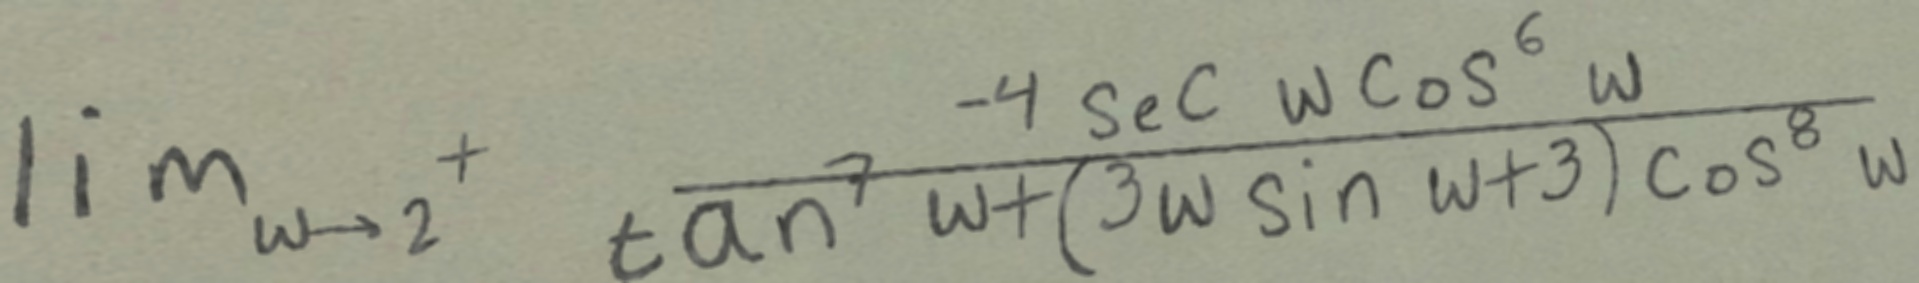 \lim_{w \to 2^+} \frac{-4 \sec w \cos^6 w}{\tan^7 w + (3w \sin w + 3) \cos^8 w}